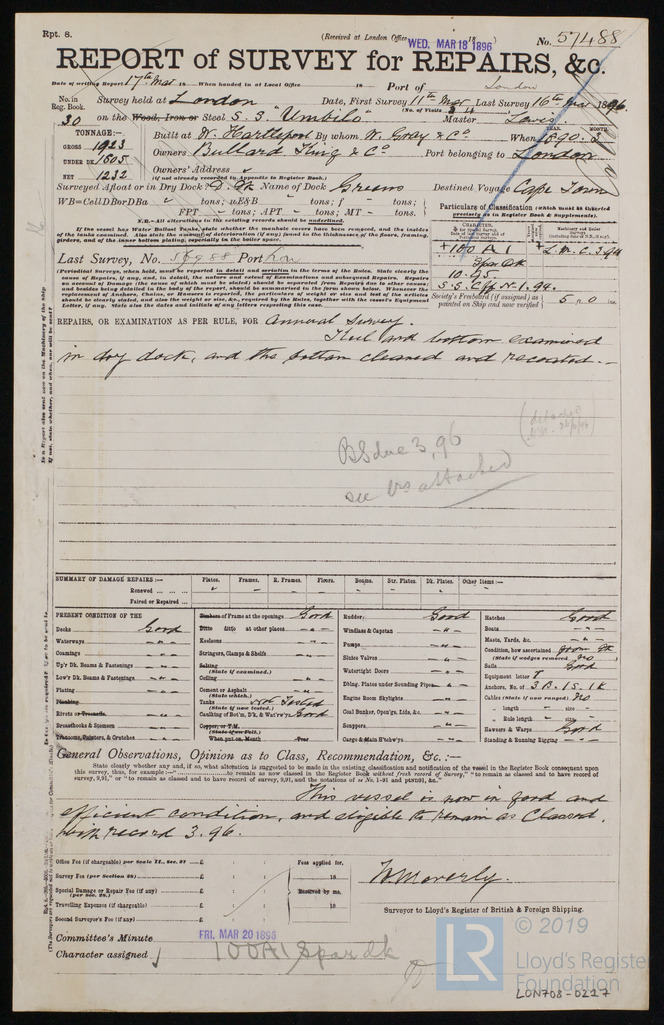 Rpt. 8.
(Received at London Office WED. MAR 18 1896 18 )
No. 57488
REPORT of SURVEY for REPAIRS, &c.
Date of writing Report 17th Mar 18 When handed in at Local Office 18 Port of London
No. in Reg. Book. 30
Survey held at London Date, First Survey 11th Mar Last Survey 16th Mar 1896
(No. of Visits 3
on the Wood, Iron or Steel S.S. "Umbilo" Master
TONNAGE:—
GROSS 1923
UNDER DK 1605
NET 1232
Built at W. Hartlepool By whom W. Gray & Co When 1890. 3
YEAR. MONTH.
Owners Bullard King & Co Port belonging to London
Owners' Address
(if not already recorded in Appendix to Register Book.)
Surveyed Afloat or in Dry Dock? D. Dk Name of Dock Greens Destined Voyage Cape Town
WB=CellDBorDBa " tons; uE&B " tons; f " tons;
FPT - tons; APT - tons; MT - tons.
N.B.—All alterations in the existing records should be underlined.
If the vessel has Water Ballast Tanks, state whether the manhole covers have been removed, and the insides
of the tanks examined. Also state the amount of deterioration (if any) found in the thicknesses of the floors, framing,
girders, and of the inner bottom plating, especially in the boiler space.
Particulars of Classification (which must be inserted
precisely as in Register Book & Supplements).
+100 A 1
Spar Dk
10.95
S.S. Cff No. 1. 94.
+ L.M.C. 3.94
Last Survey, No. 56988 Port Lon
(Periodical Surveys, when held, must be reported in detail and seriatim in the terms of the Rules. State clearly the cause of Repairs, if any, and, in detail, the nature and extent of Examinations and subsequent Repairs. Repairs on account of Damage (the cause of which must be stated) should be separated from Repairs due to other causes; and besides being detailed in the body of the report, should be summarised in the form shown below.
Society's Freeboard (if assigned) as painted on Ship and now verified 5 n 0 ins
REPAIRS, OR EXAMINATION AS PER RULE, FOR Annual Survey.
Keel and bottom examined
in dry dock, and the bottom cleaned and recoated.—
BS due 3,96
see Rs attached
SUMMARY OF DAMAGE REPAIRS:— Plates. Frames. R. Frames. Floors. Beams. Str. Plates. Dk. Plates. Other Items:—
Renewed
Faired or Repaired
PRESENT CONDITION OF THE
Decks Good
Waterways "
Coamings "
Up'r Dk. Seams & Fastenings "
Low'r Dk. Seams & Fastenings "
Plating "
Planking
Rivets or Treenails "
Breasthooks & Stemson "
Transoms, Pointers, & Crutches "
Timbers of Frame at the openings Good
Ditto ditto at other places "
Keelsons "
Stringers, Clamps & Shelfs "
Salting
(State if examined.)
Ceiling "
Cement or Asphalt "
(State which.)
Tanks Not Tested
(State if now tested.)
Caulking of Bot'm, D'k, & Wat'rw'ys Good
Copper, or Y.M.
(State if on Felt.)
When put on, Month Year
Rudder Good
Windlass & Capstan "
Pumps "
Sluice Valves "
Watertight Doors "
Dblng. Plates under Sounding Pipes "
Engine Room Skylights "
Coal Bunker, Open'gs, Lids, &c. "
Scuppers "
Cargo & Main H'tchw'ys "
Hatches Good
Boats "
Masts, Yards, &c. "
Condition, how ascertained from dk
(State if wedges removed no)
Sails Good
Equipment letter
Anchors, No. of 3 B. 1 S. 1 K
Cables (State if now ranged) no
" length " size
" Rule length " size
Hawsers & Warps Good
Standing & Running Rigging "
General Observations, Opinion as to Class, Recommendation, &c.:—
State clearly whether any, and if so, what alteration is suggested to be made in the existing classification and notification of the vessel in the Register Book consequent upon
this survey, thus, for example:—" to remain as now classed in the Register Book without fresh record of Survey," "to remain as classed and to have record of
survey, 9,91," or "to remain as classed and to have record of survey, 9,91, and the notation of ss No. 1-91 and ptND91, &c."
This vessel is now in good and
efficient condition, and eligible to remain as Classed.
with record 3.96.
Office Fee (if chargeable) per Scale II., Sec. 27 £
Survey Fee (per Section 28) £
Special Damage or Repair Fee (if any) £
(per Sec. 28.)
Travelling Expenses (if chargeable) £
Second Surveyor's Fee (if any) £
Fees applied for,
18
Received by me,
18
Surveyor to Lloyd's Register of British & Foreign Shipping.
Committee's Minute FRI. MAR 20 1896
Character assigned 100A1 Spar dk
© 2019
LR
Lloyd's Register
Foundation
LON708-0227